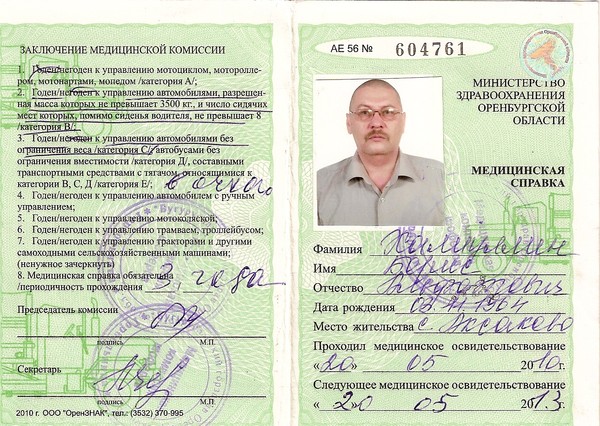 ЗАКЛЮЧЕНИЕ МЕДИЦИНСКОЙ КОМИССИИ
1. Годен/негоден к управлению мотоциклом, моторолле-
ром, мотонартами, мопедом /категория А/;
2. Годен/негоден к управлению автомобилями, разрешен-
ная масса которых не превышает 3500 кг., и число сидячих
мест которых, помимо сиденья водителя, не превышает 8
/категория В/;
3. Годен/негоден к управлению автомобилями без
ограничения веса /категория С/, автобусами без
ограничения вместимости /категория Д/, составными
транспортными средствами с тягачом, относящимися к
категории В, С, Д /категория Е/; в очках
4. Годен/негоден к управлению автомобилем с ручным
управлением;
5. Годен/негоден к управлению мотоколяской;
6. Годен/негоден к управлению трамваем, троллейбусом;
7. Годен/негоден к управлению тракторами и другими
самоходными сельскохозяйственными машинами;
(ненужное зачеркнуть)
8. Медицинская справка обязательна
/периодичность прохождения 3 года
Председатель комиссии
подпись М.П.
Секретарь
подпись М.П.
2010 г. ООО "ОренЗНАК", тел.: (3532) 370-995
АЕ 56 № 604761
МИНИСТЕРСТВО
ЗДРАВООХРАНЕНИЯ
ОРЕНБУРГСКОЙ
ОБЛАСТИ
МЕДИЦИНСКАЯ
СПРАВКА
Фамилия
Имя Борис
Отчество
Дата рождения 03.11.1964
Место жительства с. Аксаково
Проходил медицинское освидетельствование
«20» 05 2010 г.
Следующее медицинское освидетельствование
« 20 05 2013